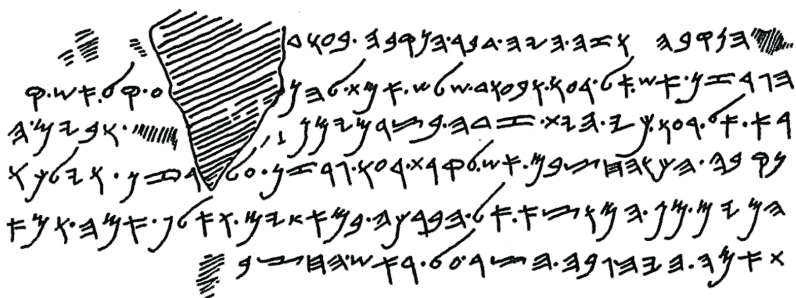 𐤄𐤍𐤒𐤁𐤄 𐤅𐤆𐤄.𐤄𐤉𐤄.𐤃𐤁𐤓.𐤄𐤍𐤒𐤁𐤄.𐤁𐤏𐤅𐤃
𐤄𐤂𐤓𐤆𐤍.𐤀𐤔.𐤀𐤋.𐤓𐤏𐤅.𐤅𐤁𐤏𐤅𐤃.𐤔𐤋𐤔.𐤀𐤌𐤕.𐤋𐤄𐤍 𐤏.𐤒𐤋.𐤀𐤔.𐤒
𐤓𐤀.𐤀𐤋.𐤓𐤏𐤅.𐤊𐤉.𐤄𐤉𐤕.𐤆𐤃𐤄.𐤁𐤑𐤓.𐤌𐤉𐤌𐤍 𐤅𐤁𐤉𐤌.𐤄
𐤍𐤒𐤁𐤄.𐤄𐤊𐤅.𐤄𐤇𐤑𐤁𐤌.𐤀𐤔.𐤋𐤒𐤓𐤕.𐤓𐤏𐤅.𐤂𐤓𐤆𐤍.𐤏𐤋 𐤓𐤆𐤍.𐤅𐤉𐤋𐤊𐤅
𐤄𐤌𐤉𐤌.𐤌𐤍.𐤄𐤌𐤅𐤑𐤀.𐤀𐤋.𐤄𐤁𐤓𐤊𐤄.𐤁𐤌𐤀𐤕𐤉𐤌.𐤅𐤀𐤋𐤐.𐤀𐤌𐤄.𐤅𐤌𐤀
𐤕.𐤀𐤌𐤄.𐤄𐤉𐤄.𐤂𐤁𐤄.𐤄𐤑𐤓.𐤏𐤋.𐤓𐤀𐤔.𐤄𐤇𐤑𐤁